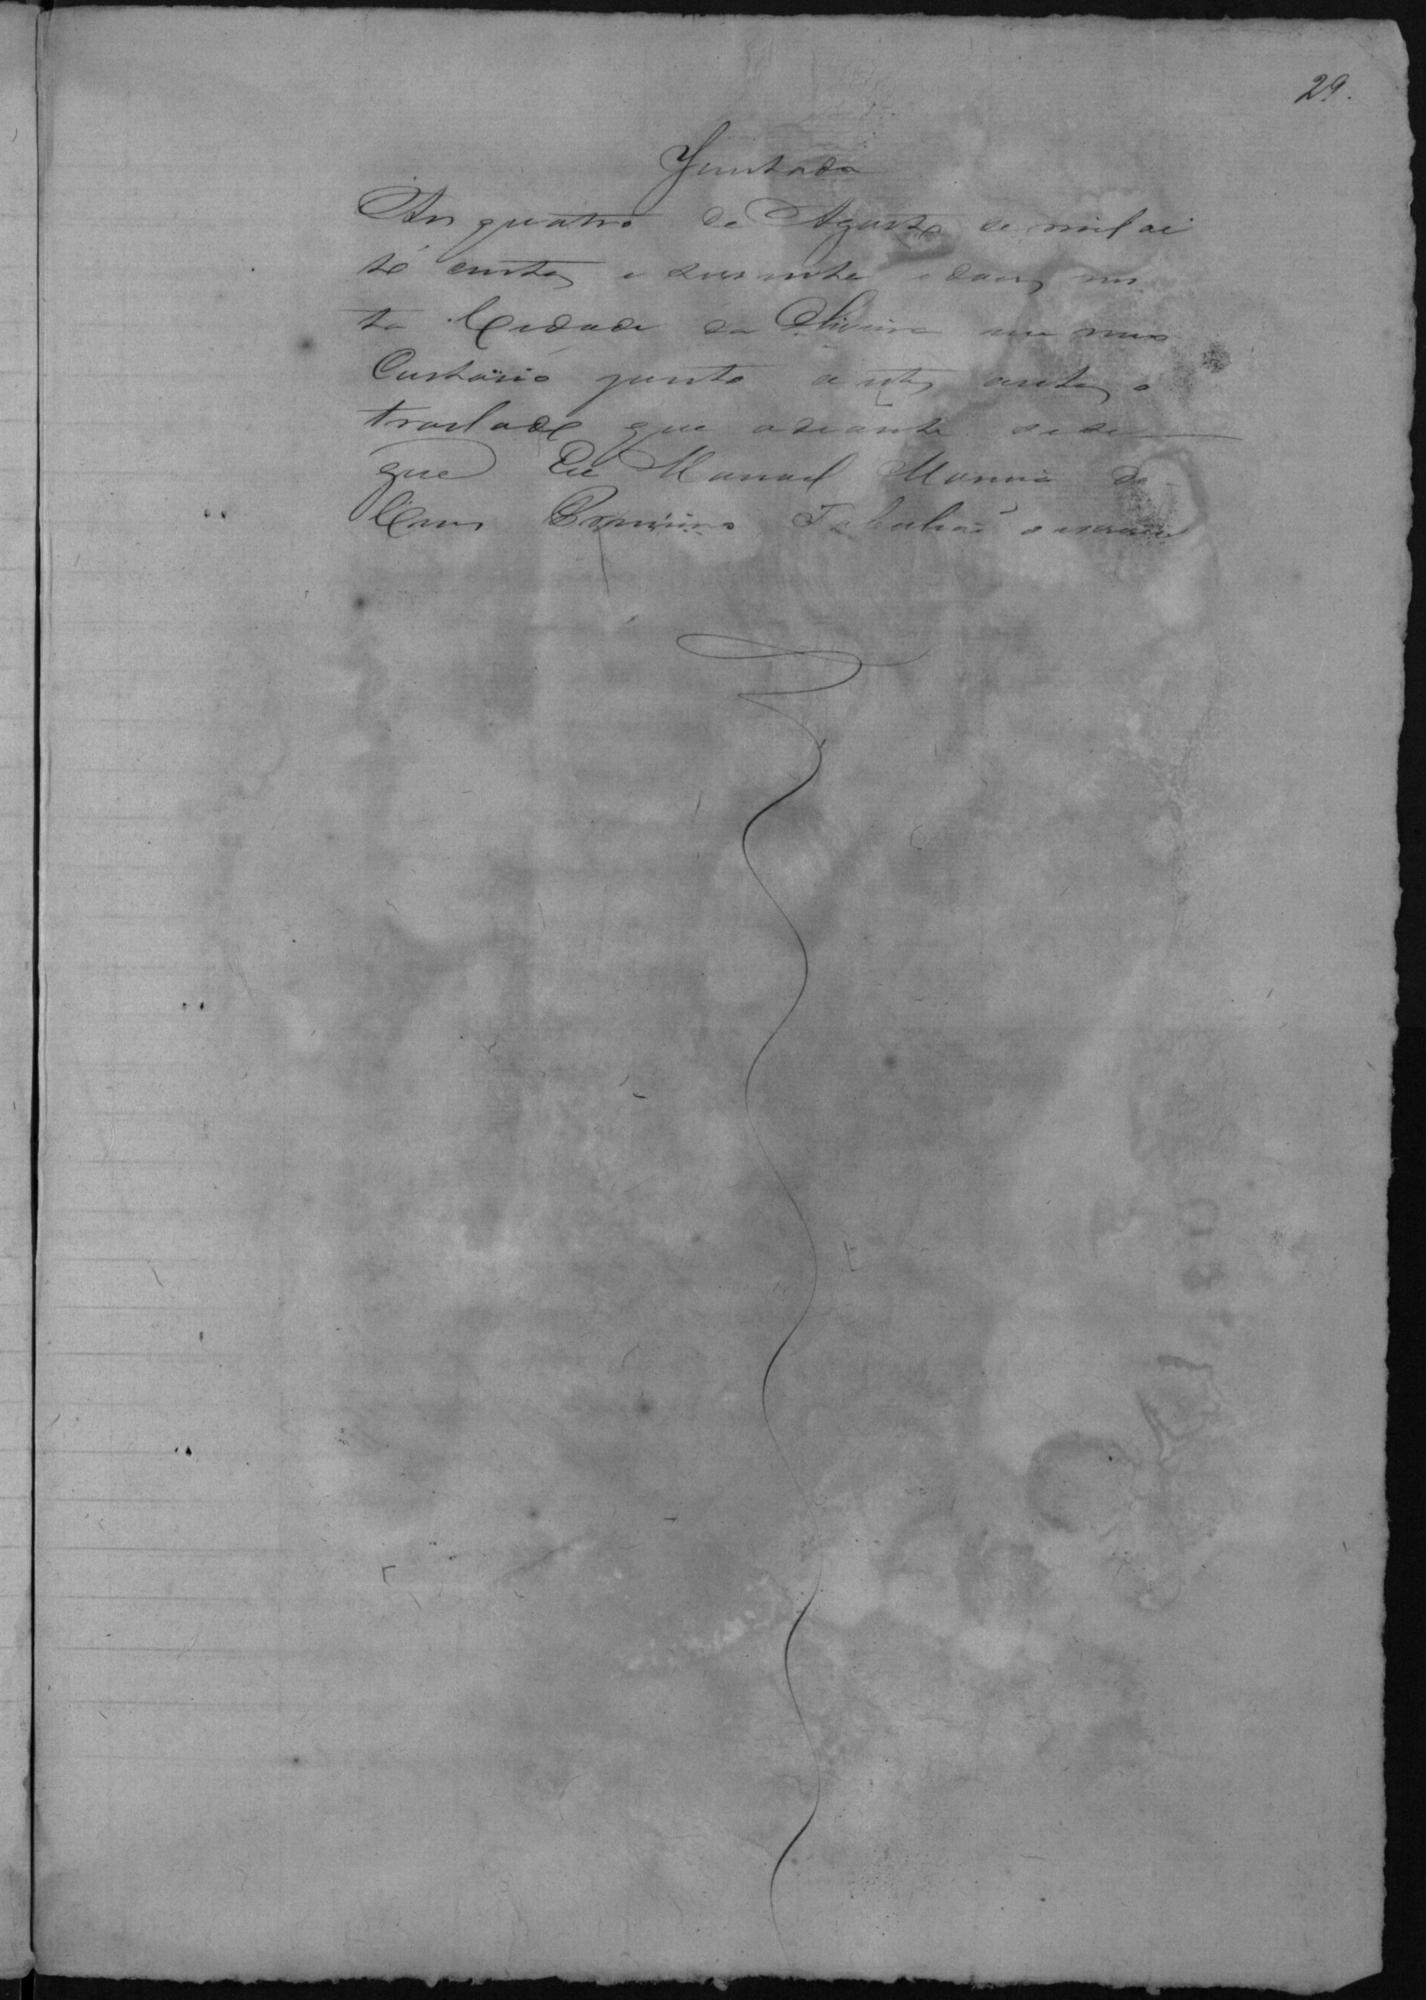 29.
Juntada
Aos quatro de Agosto de mil oi
to centos e sessenta e dous nes
ta Cidade da Oliveira em meu
Cartorio junto a estes autos o
traslado que adiante se se
gue Eu Manoel Maria da
Tabelião o escrevi